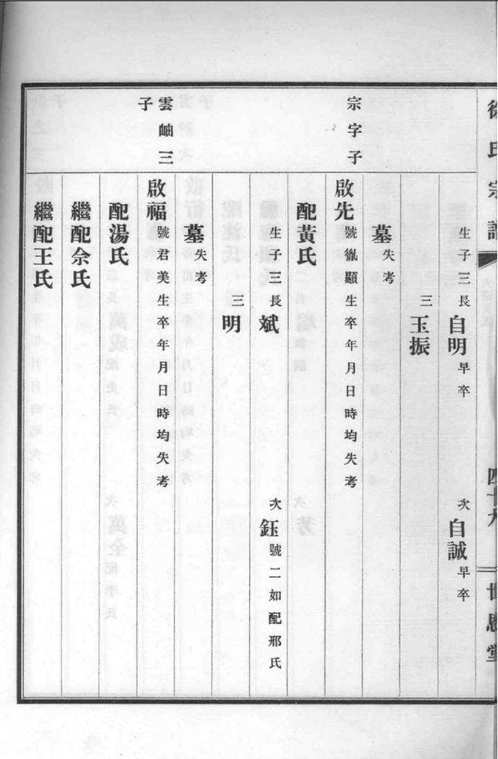 徐氏宗譜
四十九
世恩堂
生子三長自明早卒 次自誠早卒
三玉振
墓失考
宗字子
啟先號胤顯生卒年月日時均失考
配黃氏
生子三長斌 次鈺號二如配邢氏
三明
墓失考
雲岫三子
啟福號君美生卒年月日時均失考
配湯氏
繼配佘氏
繼配王氏